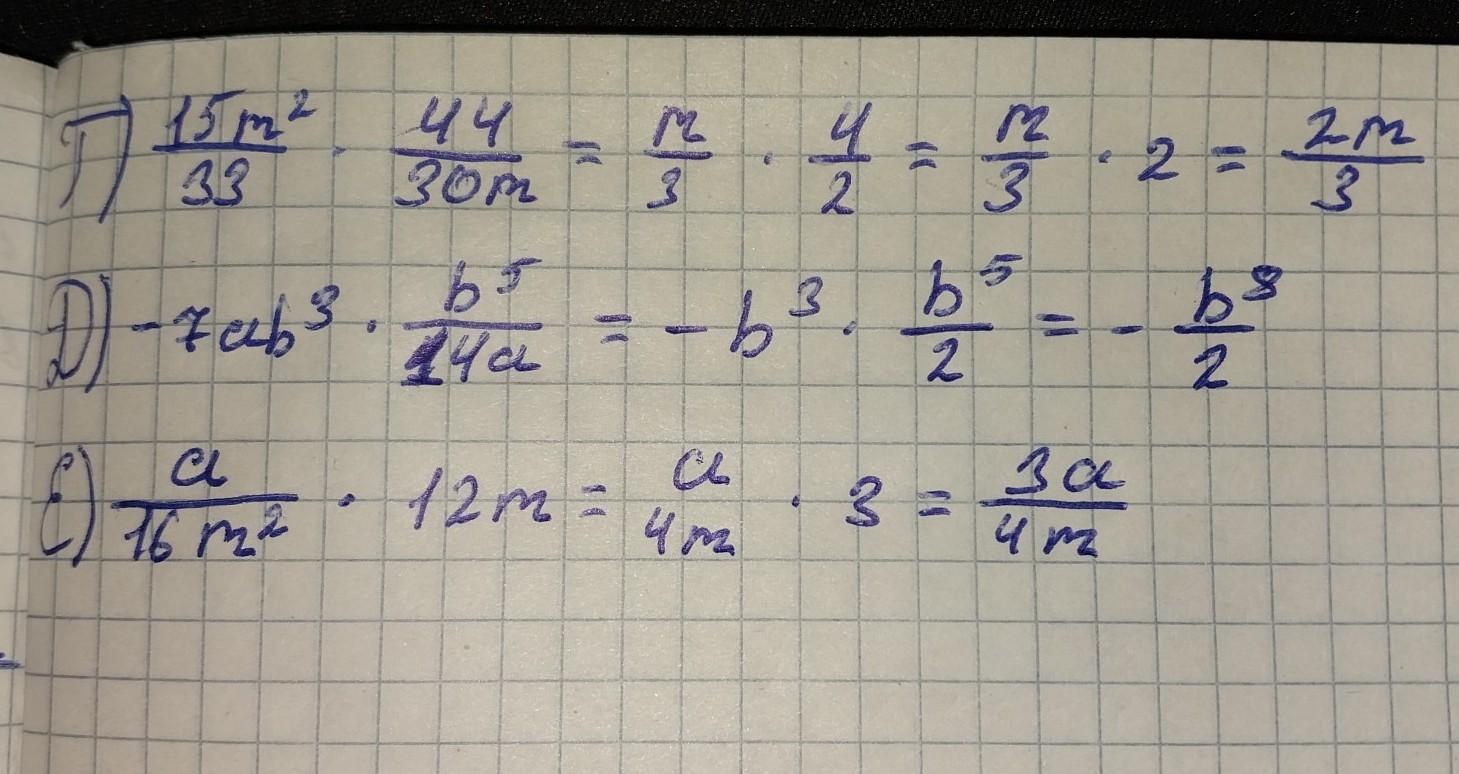 Г) 15m²/33 · 44/30m = m/3 · 4/2 = m/3 · 2 = 2m/3
Д) -7ab³ · b⁵/14a = -b³ · b⁵/2 = - b⁸/2
Е) a/16m² · 12m = a/4m · 3 = 3a/4m